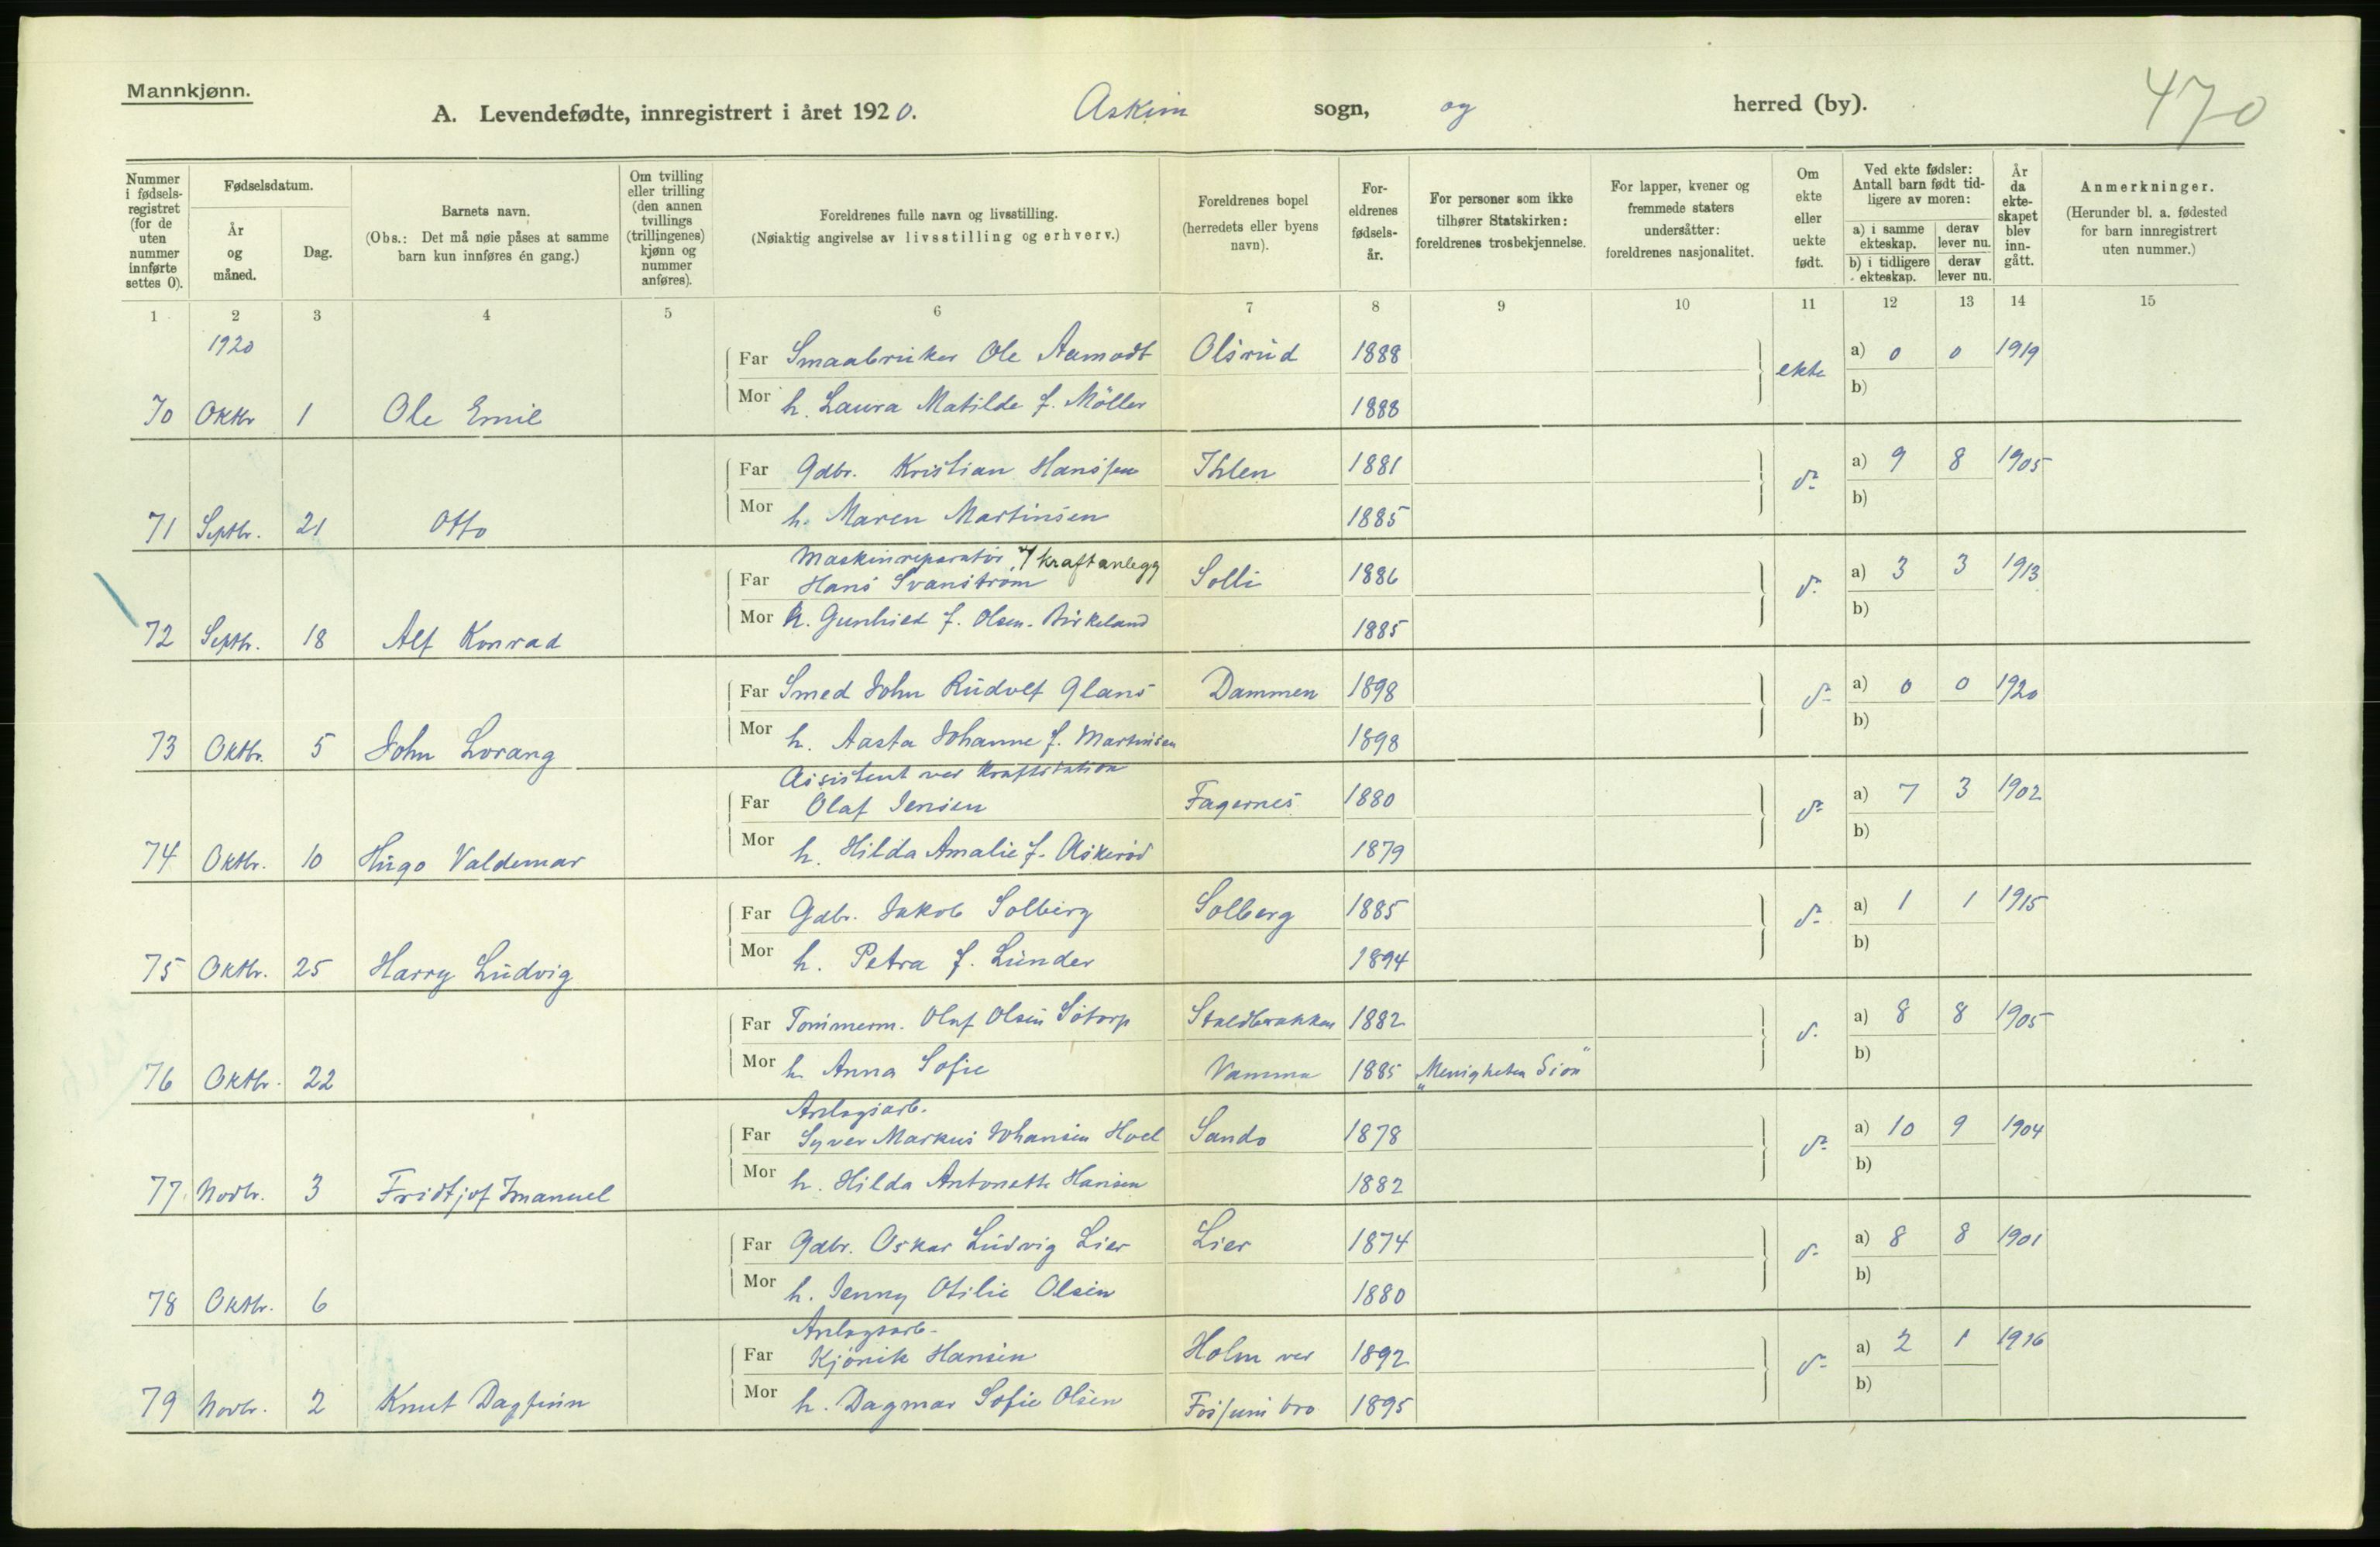 Mannkjønn.
A. Levendefødte, innregistrert i året 1920. Askim sogn, og herred (by).
470
Nummer i fødsels-registret (for de uten nummer innførte settes 0).
Fødselsdatum.
År og måned.
Dag.
Barnets navn.
(Obs.: Det må nøie påses at samme barn kun innføres én gang.)
Om tvilling eller trilling (den annen tvillings (trillingenes) kjønn og nummer anføres).
Foreldrenes fulle navn og livsstilling.
(Nøiaktig angivelse av livsstilling og erhverv.)
Foreldrenes bopel (herredets eller byens navn).
For-eldrenes fødsels-år.
For personer som ikke tilhører Statskirken: foreldrenes trosbekjennelse.
For lapper, kvener og fremmede staters undersåtter: foreldrenes nasjonalitet.
Om ekte eller uekte født.
Ved ekte fødsler: Antall barn født tid-ligere av moren:
a) i samme ekteskap.
derav lever nu.
b) i tidligere ekteskap.
derav lever nu.
År da ekte-skapet blev inn-gått.
Anmerkninger.
(Herunder bl. a. fødested for barn innregistrert uten nummer.)
1 2 3 4 5 6 7 8 9 10 11 12 13 14 15
1920
Far Smaabruker Ole Aamodt Olsrud 1888 ekte a) 0 0 1919
70 Oktbr 1 Ole Emil Mor h. Laura Matilde f. Möller 1888 b)
Far Gdbr. Kristian Hanssen Ihlen 1881 do a) 9 8 1905
71 Septbr. 21 Otto Mor h. Maren Martinsen 1885 b)
Maskinreparatör v/ kraftanlegg
Far Hans Svanström Solli 1886 do a) 3 3 1913
72 Septbr. 18 Alf Konrad Mor h. Gunhild f. Olsen-Birkeland 1885 b)
Far Smed John Rudolf Glans Dammen 1898 do a) 0 0 1920
73 Oktbr. 5 John Lorang Mor h. Aasta Johanne f. Martinsen 1898 b)
Assistent ved Kraftstation
Far Olaf Jensen Fagernes 1880 do a) 7 3 1902
74 Oktbr. 10 Hugo Valdemar Mor h. Hilda Amalie f. Askeröd 1879 b)
Far Gdbr. Jakob Solberg Solberg 1885 do a) 1 1 1915
75 Oktbr. 25 Harry Ludvig Mor h. Petra f. Lunder 1894 b)
Far Tömmerm. Olaf Olsen Sötorp 1882 do a) 8 8 1905
76 Oktbr. 22 Mor h. Anna Sofie Vamma 1885 "Menigheten Sion" b)
Anlegsarb.
Far Syver Markus Johansen Hoel Sando 1878 do a) 10 9 1904
77 Novbr. 3 Fridtjof Imanuel Mor h. Hilda Antonette Hansen 1882 b)
Far Gdbr. Oskar Ludvig Lier Lier 1874 do a) 8 8 1901
78 Oktbr. 6 Mor h. Jenny Otilie Olsen 1880 b)
Anlegsarb.
Far Kjönik Hansen Holm ved 1892 do a) 2 1 1916
79 Novbr. 2 Knut Dagfinn Mor h. Dagmar Sofie Olsen Fossum bro 1895 b)